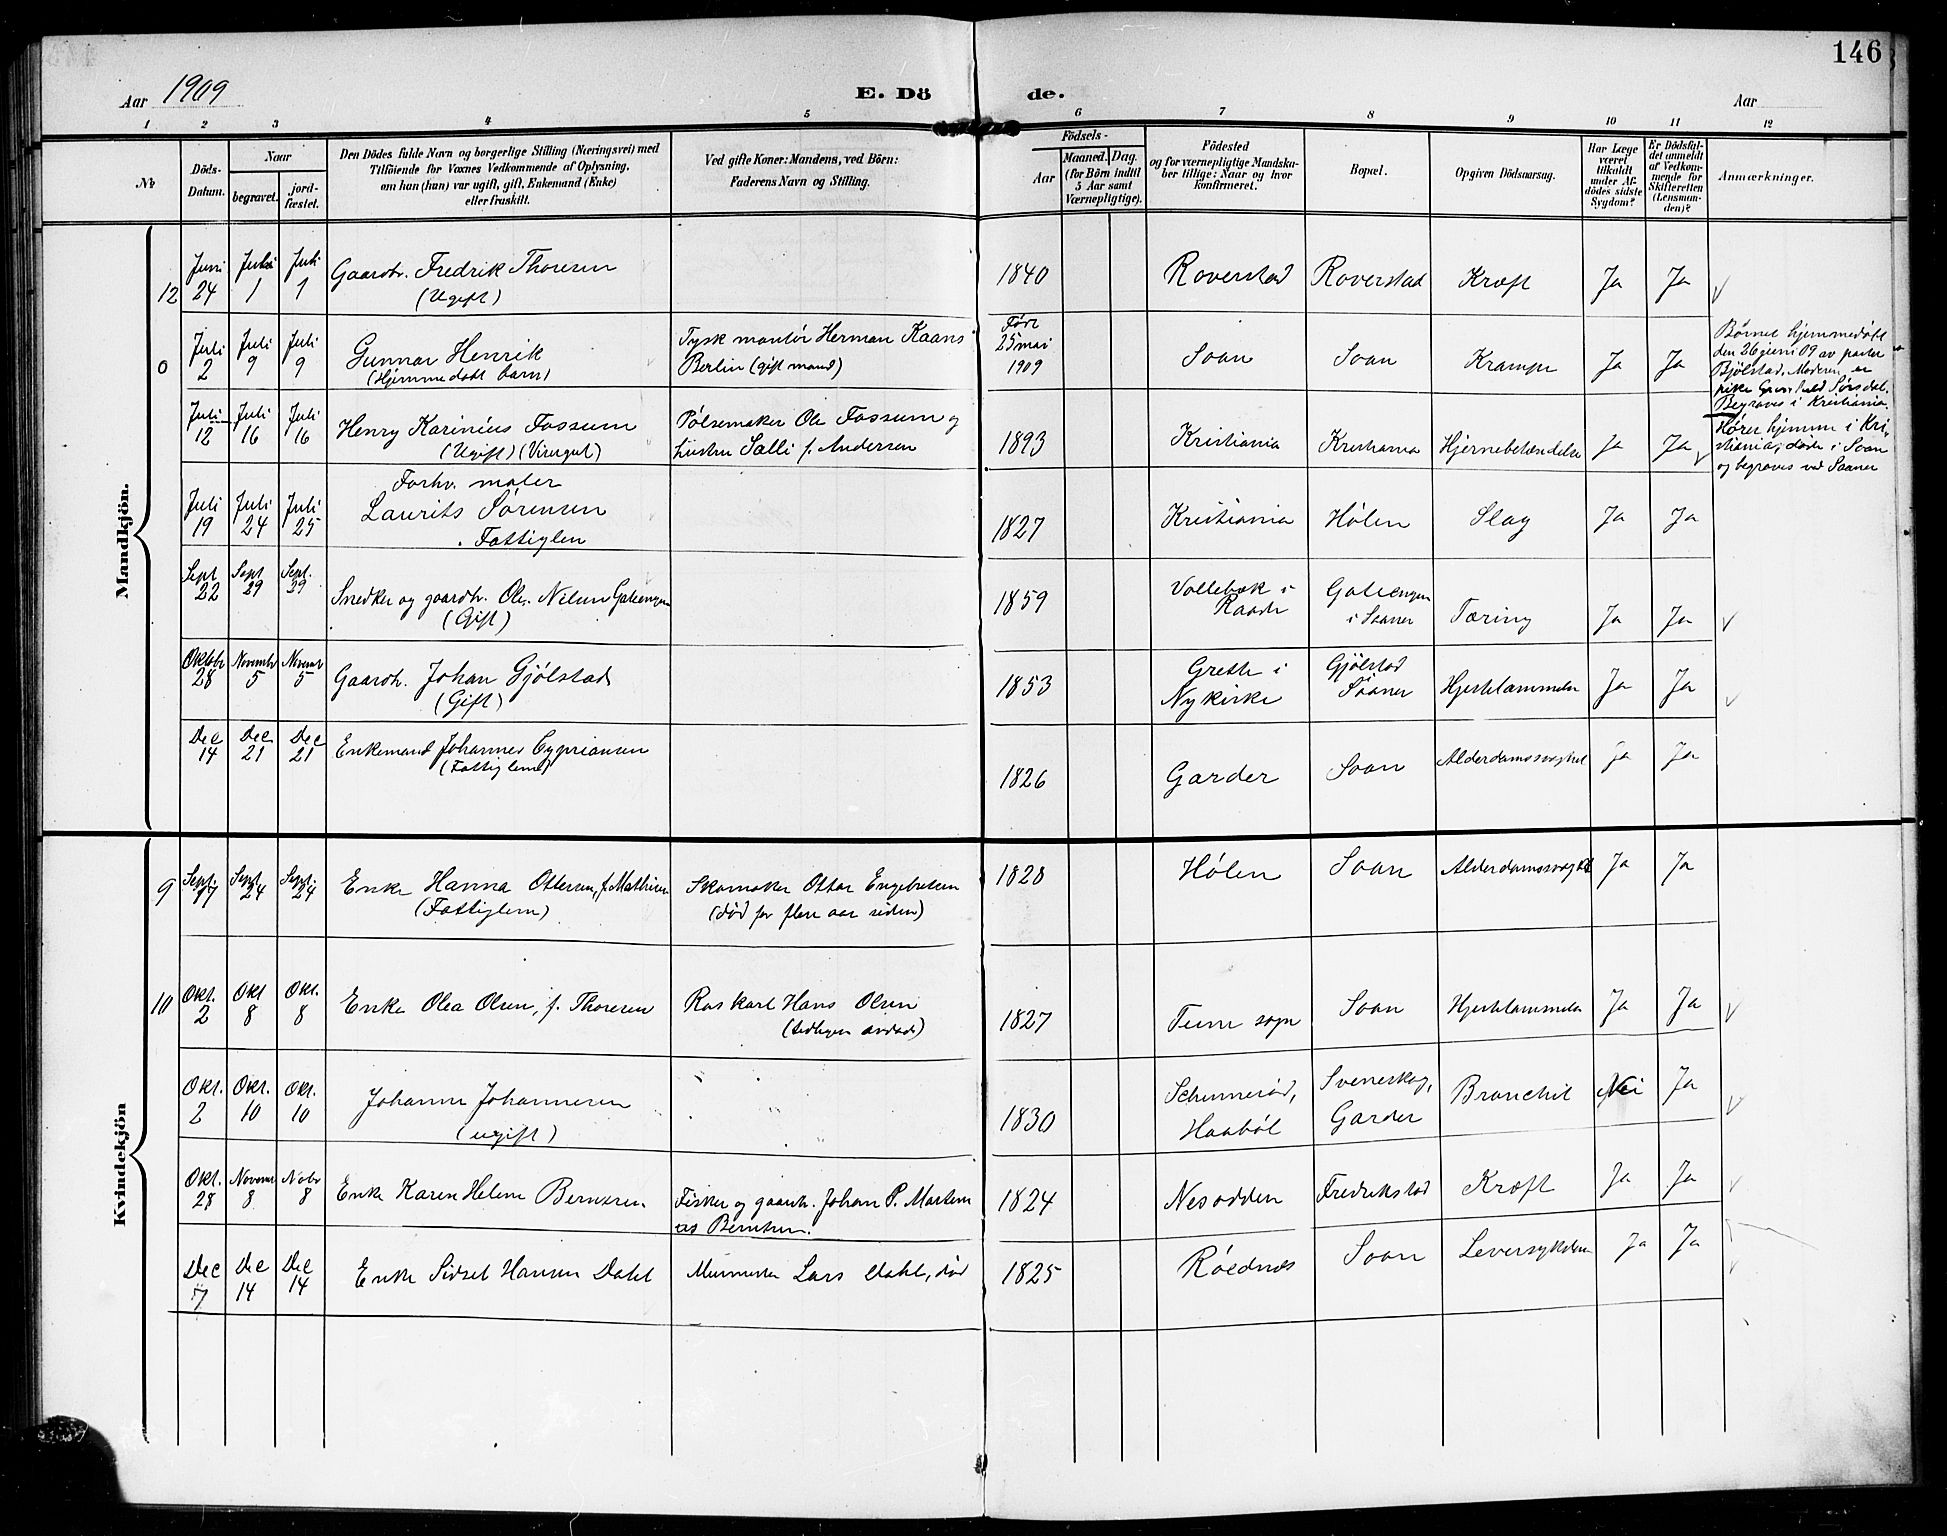 146
Aar 1909
E. Dö de.
Aar
1 2 3 4 5 6 7 8 9 10 11 12
No
Döds-Datum.
Naar
begravet.
jordfæstet.
Den Dödes fulde Navn og borgerlige Stilling (Næringsvei) med
Tilföiende for Voxnes Vedkommende af Oplysning,
om han (hun) var ugift, gift, Enkemand (Enke)
eller fraskilt.
Ved gifte Koner: Mandens, ved Börn:
Faderens Navn og Stilling.
Födsels-
Aar
Maaned. Dag.
(for Börn indtil
5 Aar samt
Værnepligtige).
Födested
og for værnepligtige Mandska-
ber tillige: Naar og hvor
konfirmeret.
Bopæl.
Opgiven Dödsaarsag.
Har Læge
været
tilkaldt
under Af-
dödes sidste
Sygdom?
Er Dödsfal-
det anmeldt
af Vedkom-
mende for
Skifteretten
(Lensman-
den)?
Anmærkninger.
Mandkjön.
12 Juni 24 Juli 1 Juli 1 Gaardbr. Fredrik Thoresen
(Ugift)
1840 Roverstad Roverstad Kræft Ja Ja
0 Juli 2 Juli 9 Juli 9 Gunnar Henrik
(Hjemmedøbt barn)
Tysk montør Herman Kaans
Berlin (gift mand)
Født
25 mai
1909
Soon Soon Krampe Ja Ja
Barnet hjemmedøbt
den 26 juni 09 av pastor
Bjølstad. Moderen er
pike Sørsdal.
Begraves i Kristiania.
Juli 12 Juli 16 Juli 16 Henry Karinius Fossum
(Ugift) (Visergut)
Pølsemaker Ole Fossum og
hustru Salli f. Andersen
1893 Kristiania Kristiania Hjernebetændelse Ja Ja
Hører hjemme i Kri-
stiania, døde i Soon
og begraves ved Saaner
Juli 19 Juli 24 Juli 25 Forhv. maler
Laurits Sørensen
Fattiglem
1827 Kristiania Hølen Slag Ja Ja
Sept 22 Sept 29 Sept. 29 Snedker og gaardbr. Ole Nilsen Galeengen
(Gift)
1859 Vollebæk i
Raade
Galeengen
i Saaner
Tæring Ja Ja
Oktobr 28 Novembr 5 Novembr 5 Gaardbr. Johan Gjølstad
(Gift)
1853 Grette i
Nykirke
Gjølstad
Saaner
Hjertelammelse Ja Ja
Dec 14 Dec 21 Dec 21 Enkemand Johannes Cypriansen
(Fattiglem)
1826 Garder Soon Alderdomssvaghet Ja Ja
Kvindekjön
9 Sept. 17 Sept. 24 Sept. 24 Enke Hanna Ottersen, f. Mathisen
(Fattiglem)
Skomaker Otter Engebretsen
(død for flere aar siden)
1828 Hølen Soon Alderdomssvaghet Ja Ja
10 Okt. 2 Okt 8 Okt. 8 Enke Olea Olsen, f. Thoresen
Roskarl Hans Olsen
(tidligen avdød)
1827 Tune sogn Soon Hjertelammelse Ja Ja
Okt. 2 Okt. 10 Okt. 10 Johanne Johannesen
(ugift)
1830
Haabøl
Sveneskog,
Garder
Bronchit Nei Ja
Okt. 28 Novemr 8 Nobr 8 Enke Karen Helene Berntsen
Fisker og gaardbr. Johan P. Martinius Berntsen.
1824 Nesodden Fredrikstad Kræft Ja Ja
Dec 7 Dec 14 Dec 14 Enke Sidsel Hansen Dahl
Murmester Lars Dahl, død
1825 Rødnes Soon Leversykdom Ja Ja